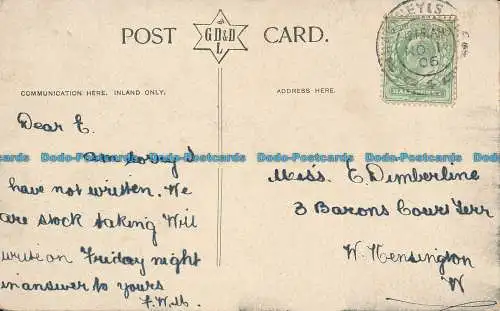 POST CARD.
G.D.&D.
L
COMMUNICATION HERE. INLAND ONLY.
ADDRESS HERE.
HALFPENNY
06
Dear E.
am sorry I
have not written. We
are stock taking Will
write on Friday night
in answer to yours
F.W.B.
Miss. E. Dimberline
3 Barons Court Terr
W. Kensington
W
Dodo-Postcards Dodo-Postcards Dodo-Postcards Dodo-Postcards